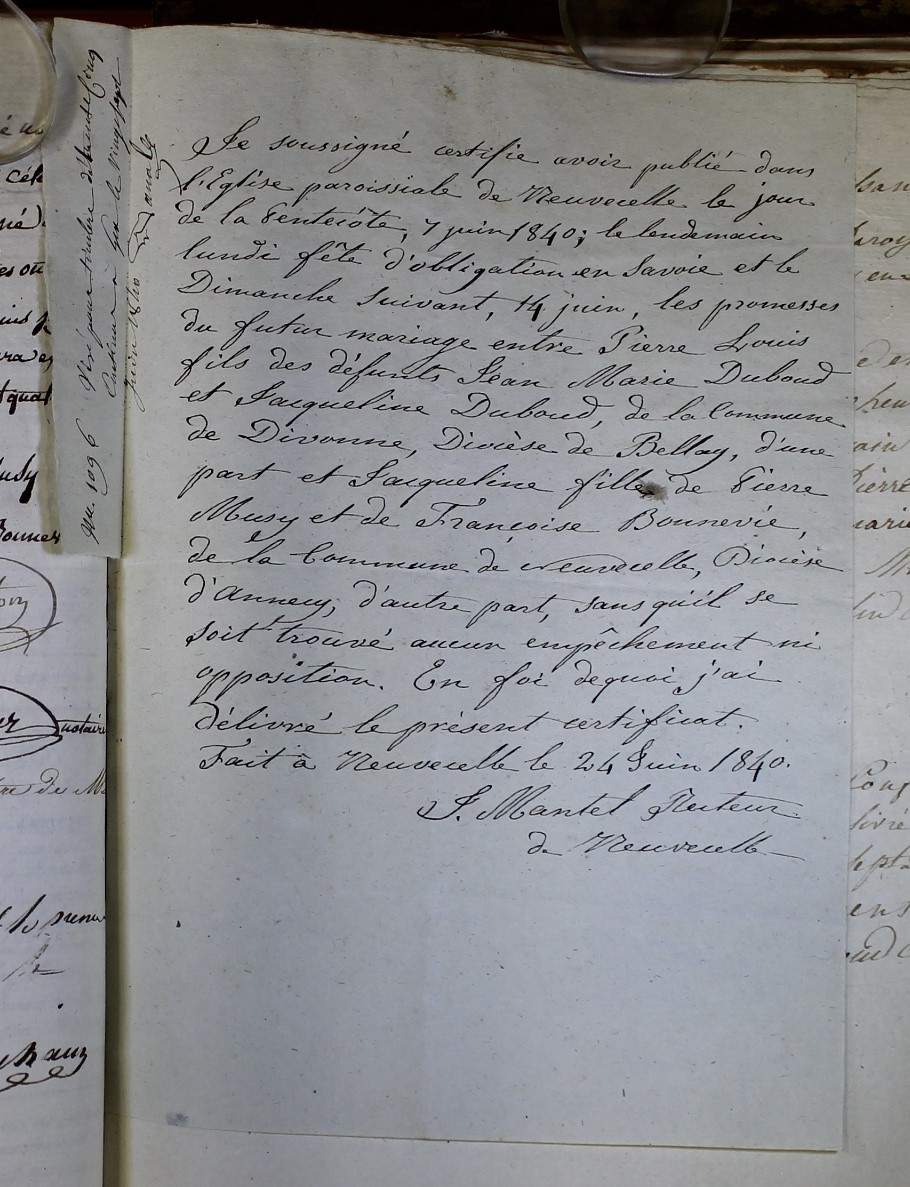 Je soussigné certifie avoir publié dans
l'Eglise paroissiale de Neuvecelle le jour
de la Pentecôte, 7 juin 1840; le lendemain
lundi fête d'obligation en Savoie et le
Dimanche suivant, 14 juin, les promesses
du futur mariage entre Pierre Louis
fils des défunts Jean Marie Duboud
et Jacqueline Duboud, de la Commune
de Divonne, Diocèse de Bellay, d'une
part et Jacqueline fille de Pierre
Musy et de Françoise Bonnevie,
de la Commune de Neuvecelle, Diocèse
d'Annecy, d'autre part, sans qu'il se
soit trouvé aucun empêchement ni
opposition. En foi de quoi j'ai
délivré le présent certificat.
Fait à Neuvecelle le 24 Juin 1840.
J. Mantel Recteur
de Neuvecelle
Visé pour timbre trente cinq
centimes à Gex le vingt sept
juin 1840
notaire